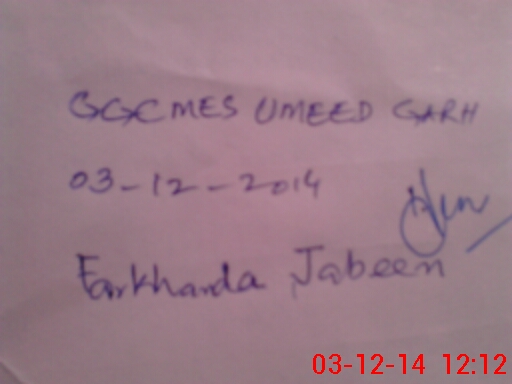 GGCMES UMEED GARH
03-12-2014
Farkhanda Jabeen
03-12-14 12:12